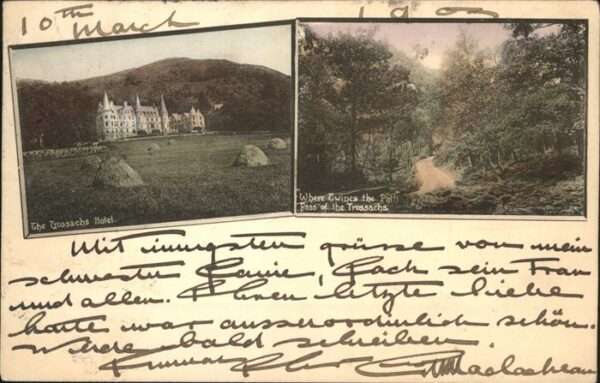 10th March 190
The Trossachs Hotel.
Where Twines the Path
Pass of the Trossachs.
Mit innigsten grüsse von mein
schwester Janie, Jack sein Frau
und allen. Ihren letzte liebe
karte war ausserordinlich schön.
Werde bald schreiben.
Immer Ihr